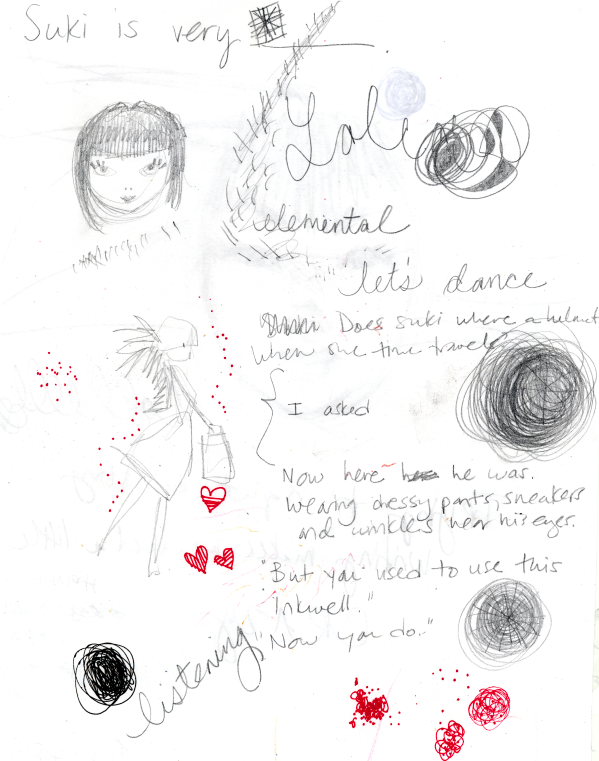 Suki is very
elemental
let's dance
Does Suki where a helmet
when she time travels?
I asked
Now here he was.
Wearing dressy pants, sneakers
and wrinkles near his eyes.
"But you used to use this
Inkwell."
"Now you do."
listening